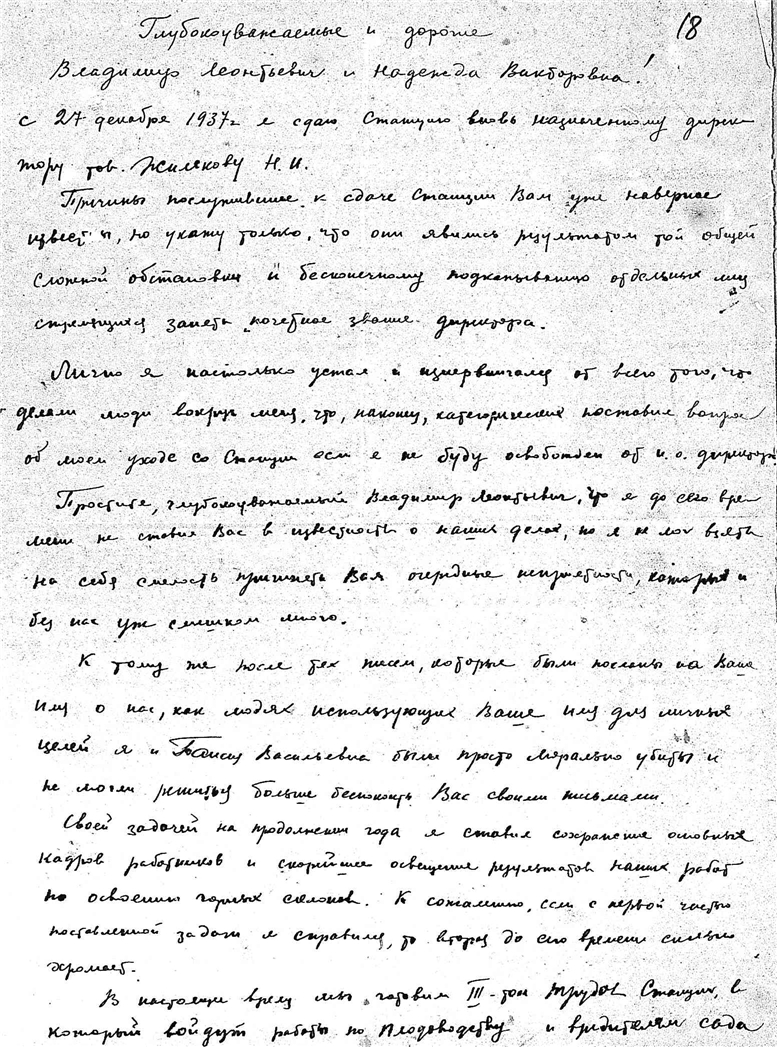 18
Глубокоуважаемые и дорогие
Владимир Леонтьевич и Надежда Викторовна!
с 27 декабря 1937г я сдаю Станцию вновь назначенному дирек
тору тов. Жилякову Н.И.
Причины послужившие к сдаче Станции Вам уже наверное
известны, но укажу только, что они явились результатом той общей
сложной обстановки и бесконечному подкапыванию отдельных лиц
стремящихся занять почетное звание директора.
Лично я настолько устал и изнервничался от всего того, что
делали люди вокруг меня, что, наконец, категорически поставил вопрос
об моем уходе со Станции если я не буду освобожден от и.о. директора.
Простите, глубокоуважаемый Владимир Леонтьевич, что я до сего вре
мени не ставил Вас в известность о наших делах, но я не мог взять
на себя смелость причинять Вам очередные неприятности, которых и
без нас уж слишком много.
К тому же после тех писем, которые были посланы на Ваше
имя о нас, как людях использующих Ваше имя для личных
целей я и Таисия Васильевна были просто морально убиты и
не могли решиться больше беспокоить Вас своими письмами.
Своей задачей на продолжении года я ставил сохранение основных
кадров работников и скорейшее освещение результатов наших работ
по освоению горных склонов. К сожалению, если с первой частью
поставленной задачи я справился, то вторая до сего времени сильно
хромает.
В настоящее время мы готовим III-том трудов Станции, в
который войдут работы по плодоводству и вредителям сада